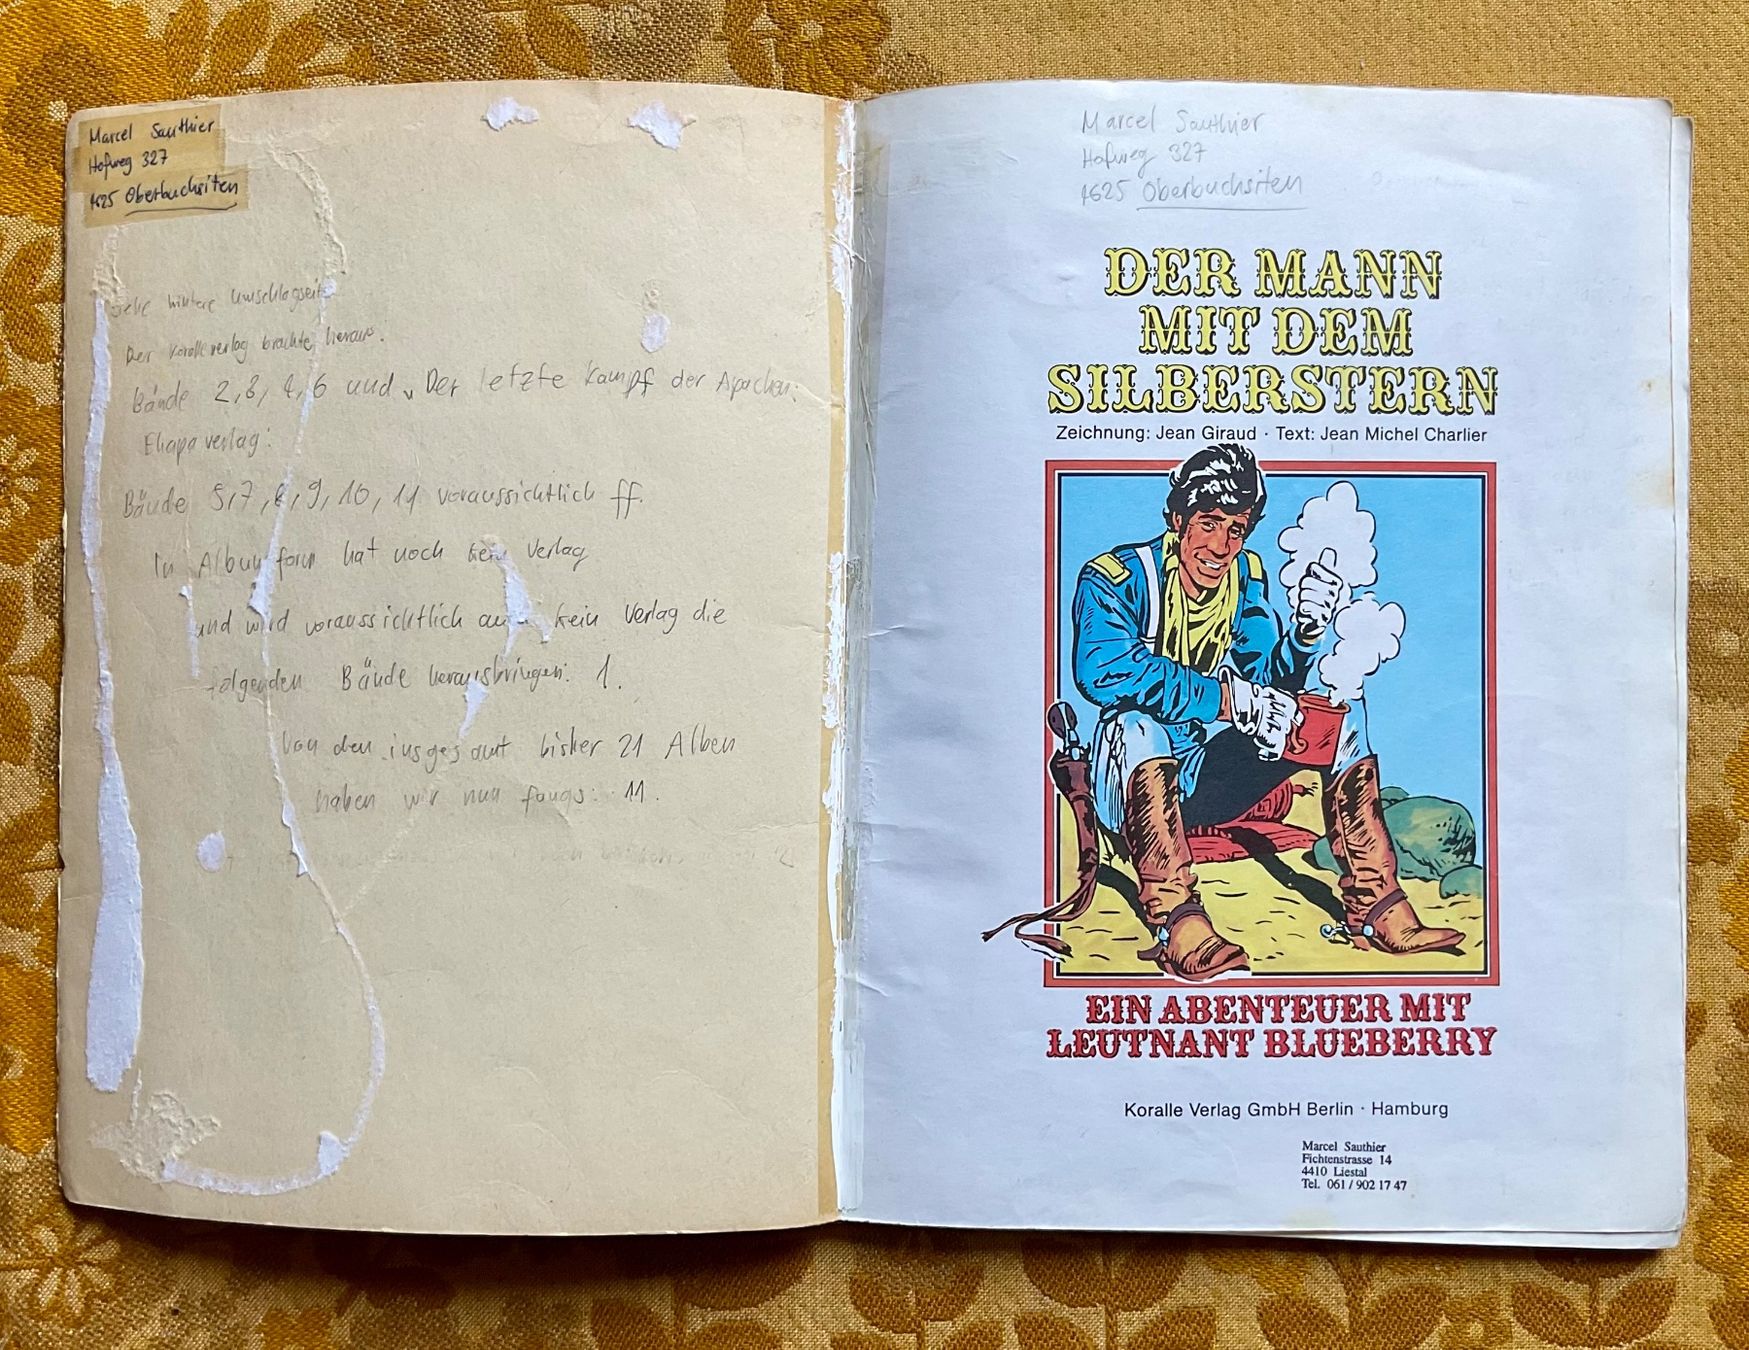 Marcel Sauthier
Hofweg 327
4625 Oberbuchsiten
Siehe hintere Umschlagseite
Der Koralleverlag brachte heraus:
Bände 2,3, 4, 6 und "Der letzte Kampf der Apachen:
Ehapaverlag:
Bände 5,7,8,9,10, 11 voraussichtlich ff.
In Albumform hat noch kein Verlag
und wird voraussichtlich auch kein Verlag die
folgenden Bände herausbringen: 1.
Von den insgesamt bisher 21 Alben
haben wir nun 11.
12
Marcel Sauthier
Hofweg 327
4625 Oberbuchsiten
DER MANN
MIT DEM
SILBERSTERN
Zeichnung: Jean Giraud · Text: Jean Michel Charlier
EIN ABENTEUER MIT
LEUTNANT BLUEBERRY
Koralle Verlag GmbH Berlin · Hamburg
Marcel Sauthier
Fichtenstrasse 14
4410 Liestal
Tel. 061 / 902 17 47